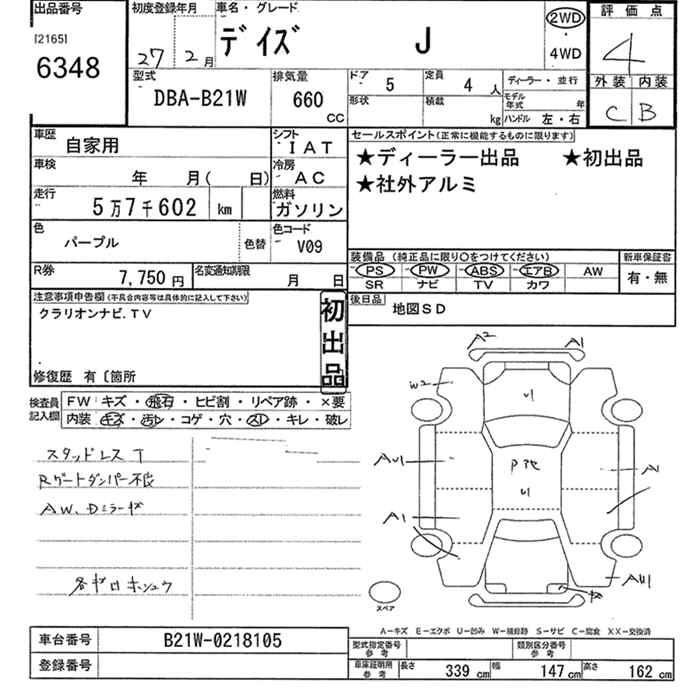 出品番号 初度登録年月 車名・グレード 2WD 評価点
[2165] 27 2月 デイズ J 4WD 4
6348 外装 内装
型式 排気量 ドア 5 定員 4人 ディーラー・並行 C B
DBA-B21W 660 CC 形状 積載 kg モデル年式 年
ハンドル 左・右
車歴 自家用 シフト IAT セールスポイント(正常に機能するものに限ります)
車検 年 月( 日) 冷房 AC ★ディーラー出品 ★初出品
走行 5万7千602 km 燃料 ガソリン ★社外アルミ
色 パープル 色替 色コード V09
装備品(純正品に限り○をつけてください) 新車保証書
PS PW ABS エアB AW 有・無
SR ナビ TV カワ
R券 7,750円 名変通知期限 月 日
注意事項申告欄(不具合内容等は具体的に記入して下さい) 初出品 後日品 地図SD
クラリオンナビ.TV
修復歴 有〔箇所
検査員記入欄 FW キズ・飛石・ヒビ割・リペア跡・×要
内装 キズ・汚レ・コゲ・穴・スレ・キレ・破レ
スタッドレスT
Rゲートダンパー不良
AW、Dミラーキズ
各キロホシュウ
A2 A1
W2 U1
AU1 A1 Pアセ U1 A
AU1
スペア
A-キズ E-エクボ U-凹み W-補修跡 S-サビ C-腐食 XX-交換済
車台番号 B21W-0218105 型式指定番号参考 類別区分番号参考
登録番号 車庫証明用参考 長さ 339cm 幅 147cm 高さ 162cm